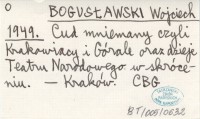 O
BOGUSŁAWSKI Wojciech
1949. Cud mniemany czyli
Krakowiacy i Górale oraz dzieje
Teatru Narodowego w skróce-
niu. — Kraków. CBG
BT/005/0632